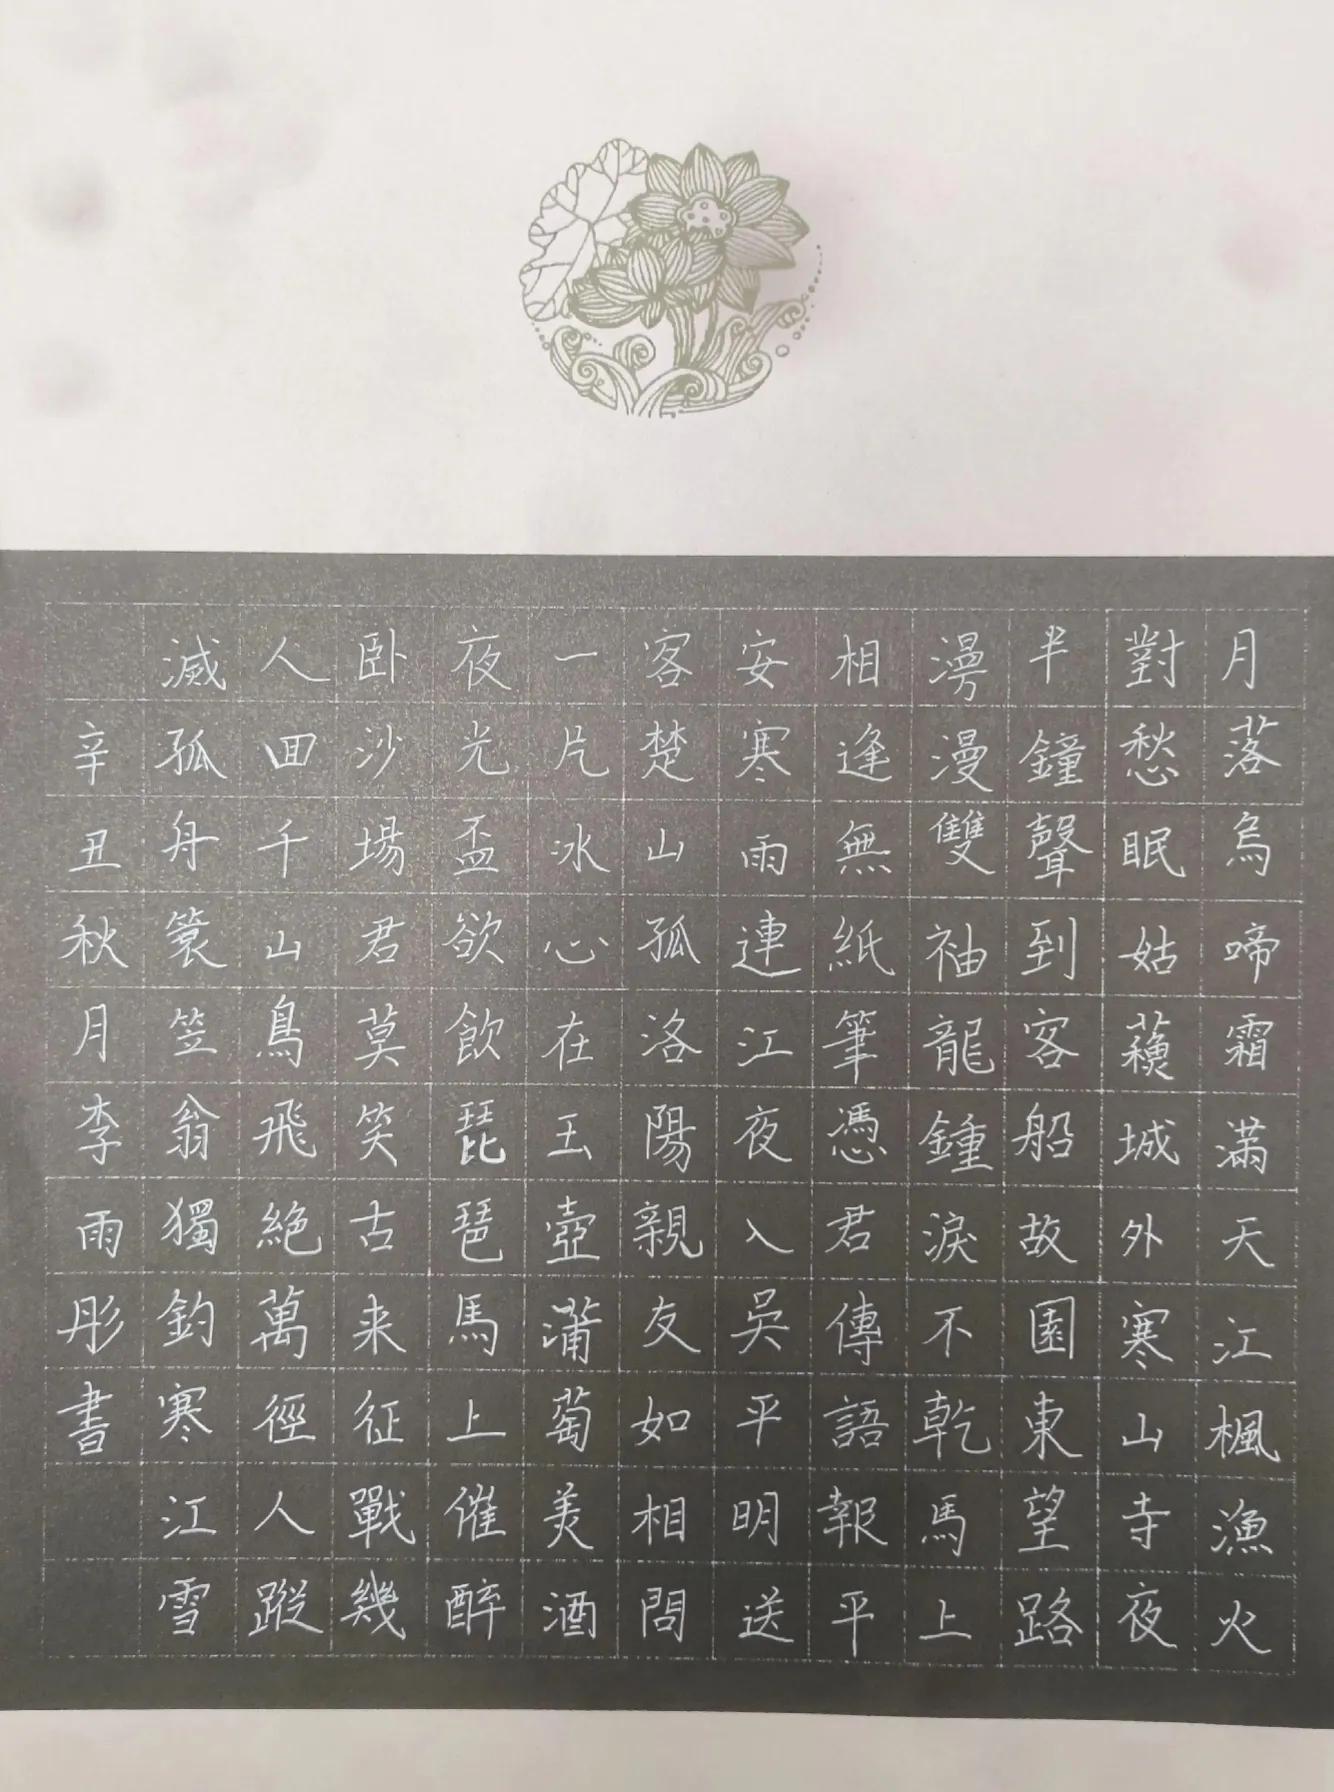 月落烏啼霜滿天江楓漁火
對愁眠姑蘓城外寒山寺夜
半鐘聲到客船故園東望路
漫漫雙袖龍鍾淚不乾馬上
相逢無紙筆憑君傳語報平
安寒雨連江夜入吳平明送
客楚山孤洛陽親友如相問
一片冰心在玉壺蒲萄美酒
夜光盃欲飲琵琶馬上催醉
卧沙場君莫笑古来征戰幾
人回千山鳥飛絕萬徑人蹤
滅孤舟簑笠翁獨釣寒江雪
辛丑秋月李雨彤書